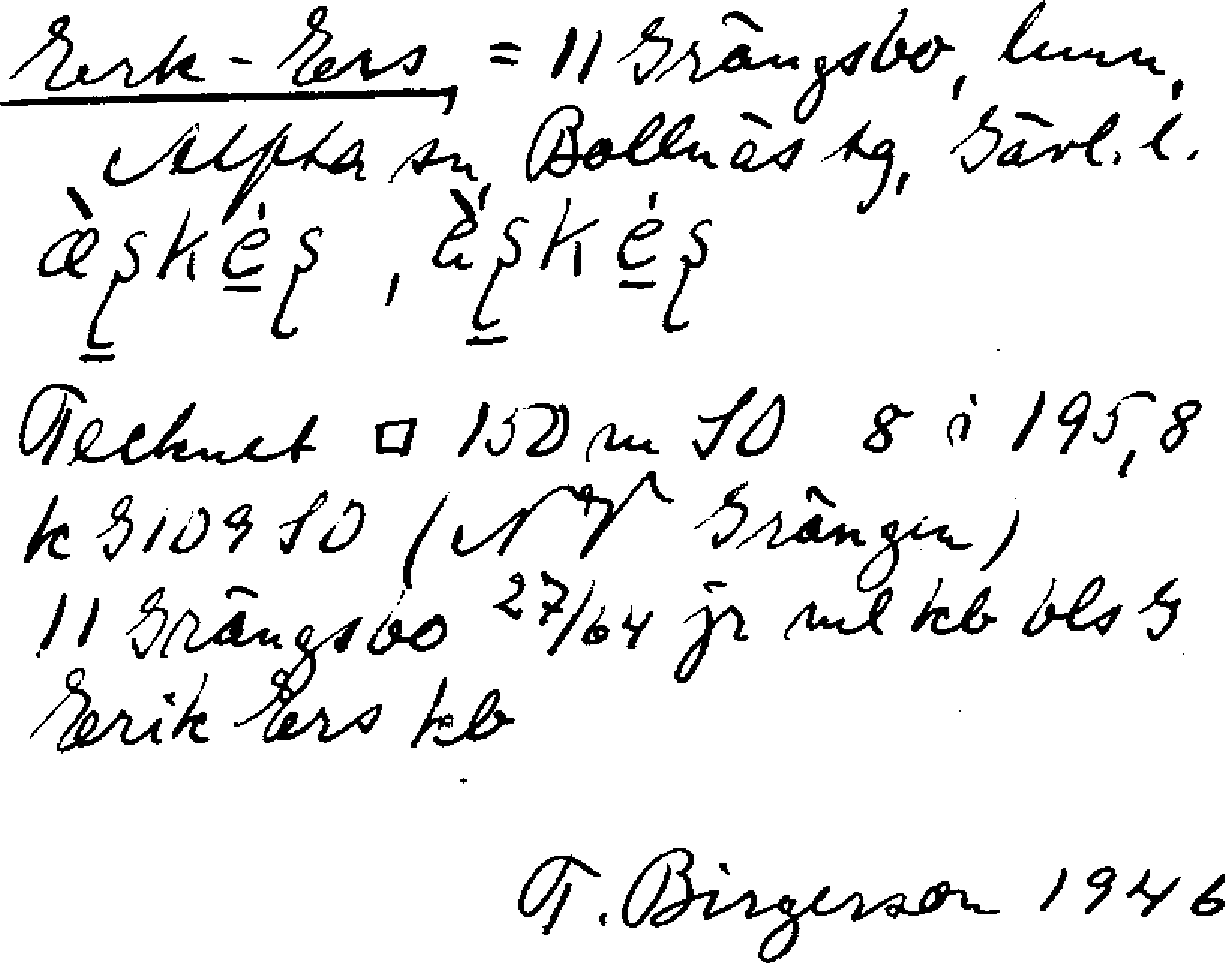 Eerk-Ers, = 11 Grängsbo, hmn,
Alfta sn, Bollnäs tg, Gävl. l.
æ̀ʂkéʂ, è̀ʂkéʂ
Tecknet □ 150 m SO 8 i 195,8
k G109 SO (NV Grängen)
11 Grängsbo 27/64 jr ml kb bls G
Eerik Ers kb
T. Birgerson 1946